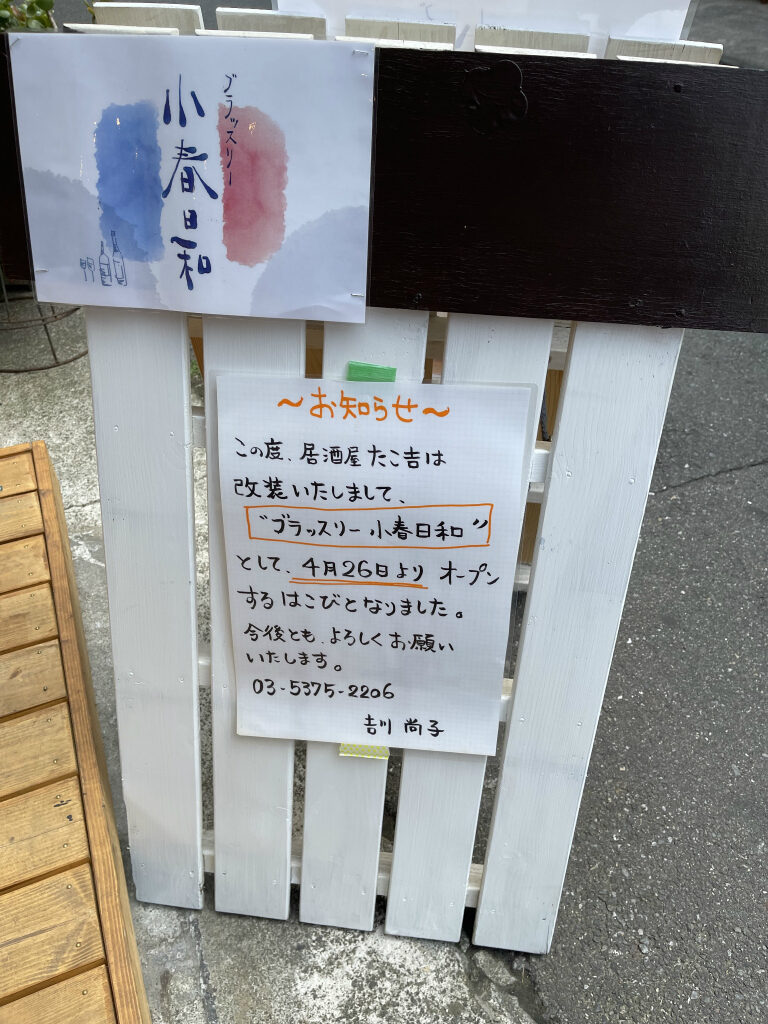 ブラッスリー
小春日和
～お知らせ～
この度、居酒屋たこ吉は
改装いたしまして、
"ブラッスリー 小春日和"
として、4月26日より オープン
するはこびとなりました。
今後とも、よろしくお願い
いたします。
03-5375-2206
吉川 尚子